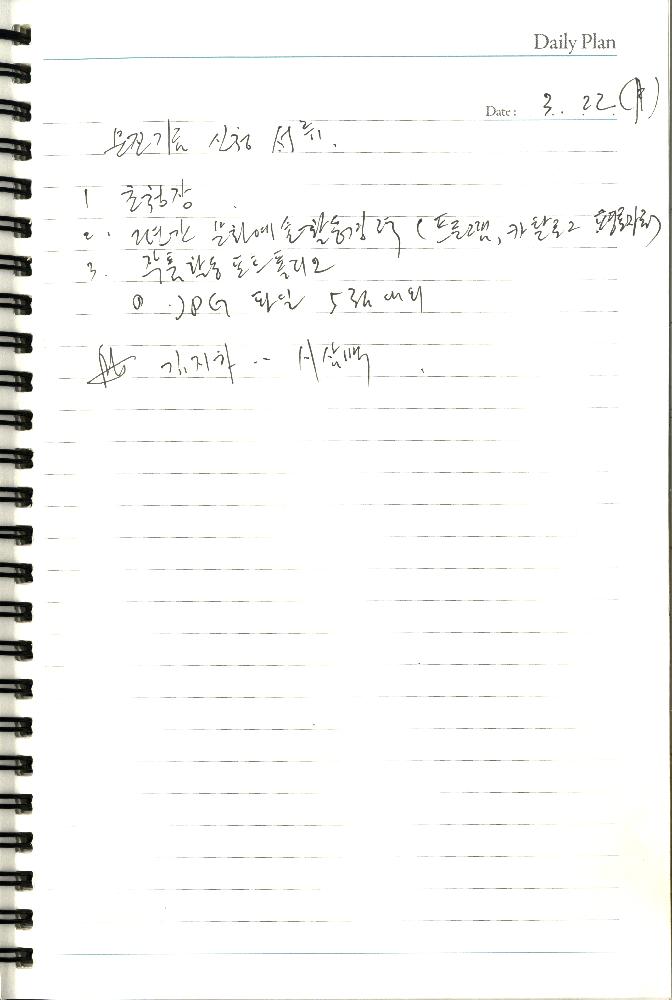 Daily Plan
Date : 3. 22 (화)
문진기금 신청 서류.
1 초청장
2. 2년간 문화예술활동경력 (프로그램, 카탈로그 포함)
3. 작품활동 포트폴리오
◎ .JPG 파일 5점 내외
김지하 -- 서삼백